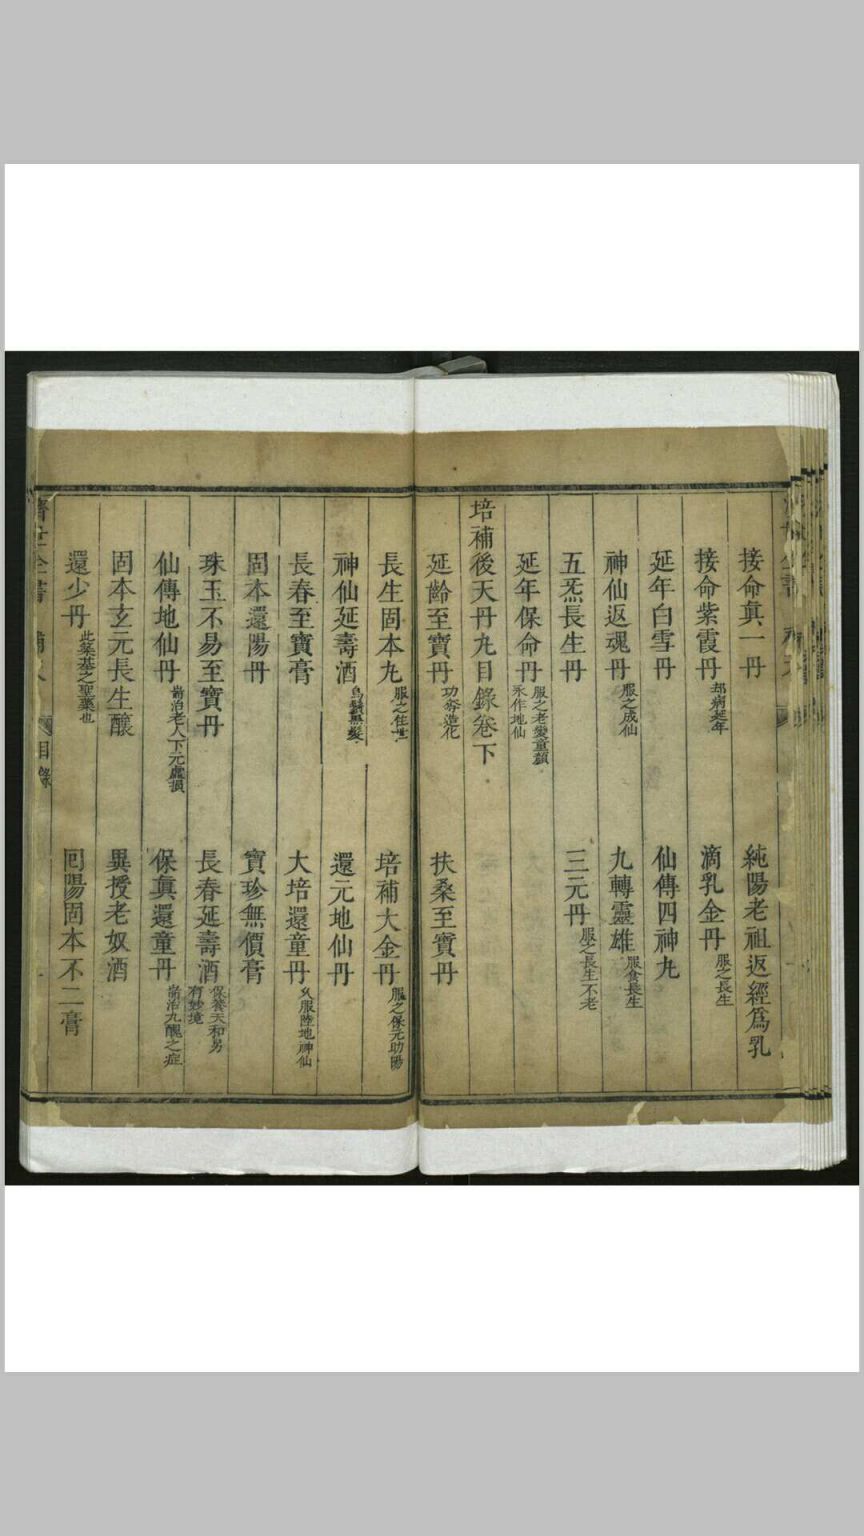 接命眞一丹 純陽老祖返經爲乳
接命紫霞丹 却病延年 滴乳金丹 服之長生
延年白雪丹 仙傳四神丸
神仙返魂丹 服之成仙 九轉靈雄 服食長生
五炁長生丹 三元丹 服之長生不老
延年保命丹 服之老變童顏 永作地仙
培補後天丹丸目錄卷下
延齡至寶丹 功奪造化 扶桑至寶丹
長生固本丸 服之住世 培補大金丹 服之保元助陽
神仙延壽酒 烏鬚黑髮 還元地仙丹
長春至寶膏 大培還童丹 久服陸地神仙
固本還陽丹 寶珍無價膏
珠玉不易至寶丹 長春延壽酒 保養天和另 有妙境
仙傳地仙丹 耑治老人下元虛損 保眞還童丹 耑治九醜之症
固本玄元長生釀 異授老奴酒
還少丹 此築基之聖藥也 囘陽固本不二膏
濟世全書 目錄